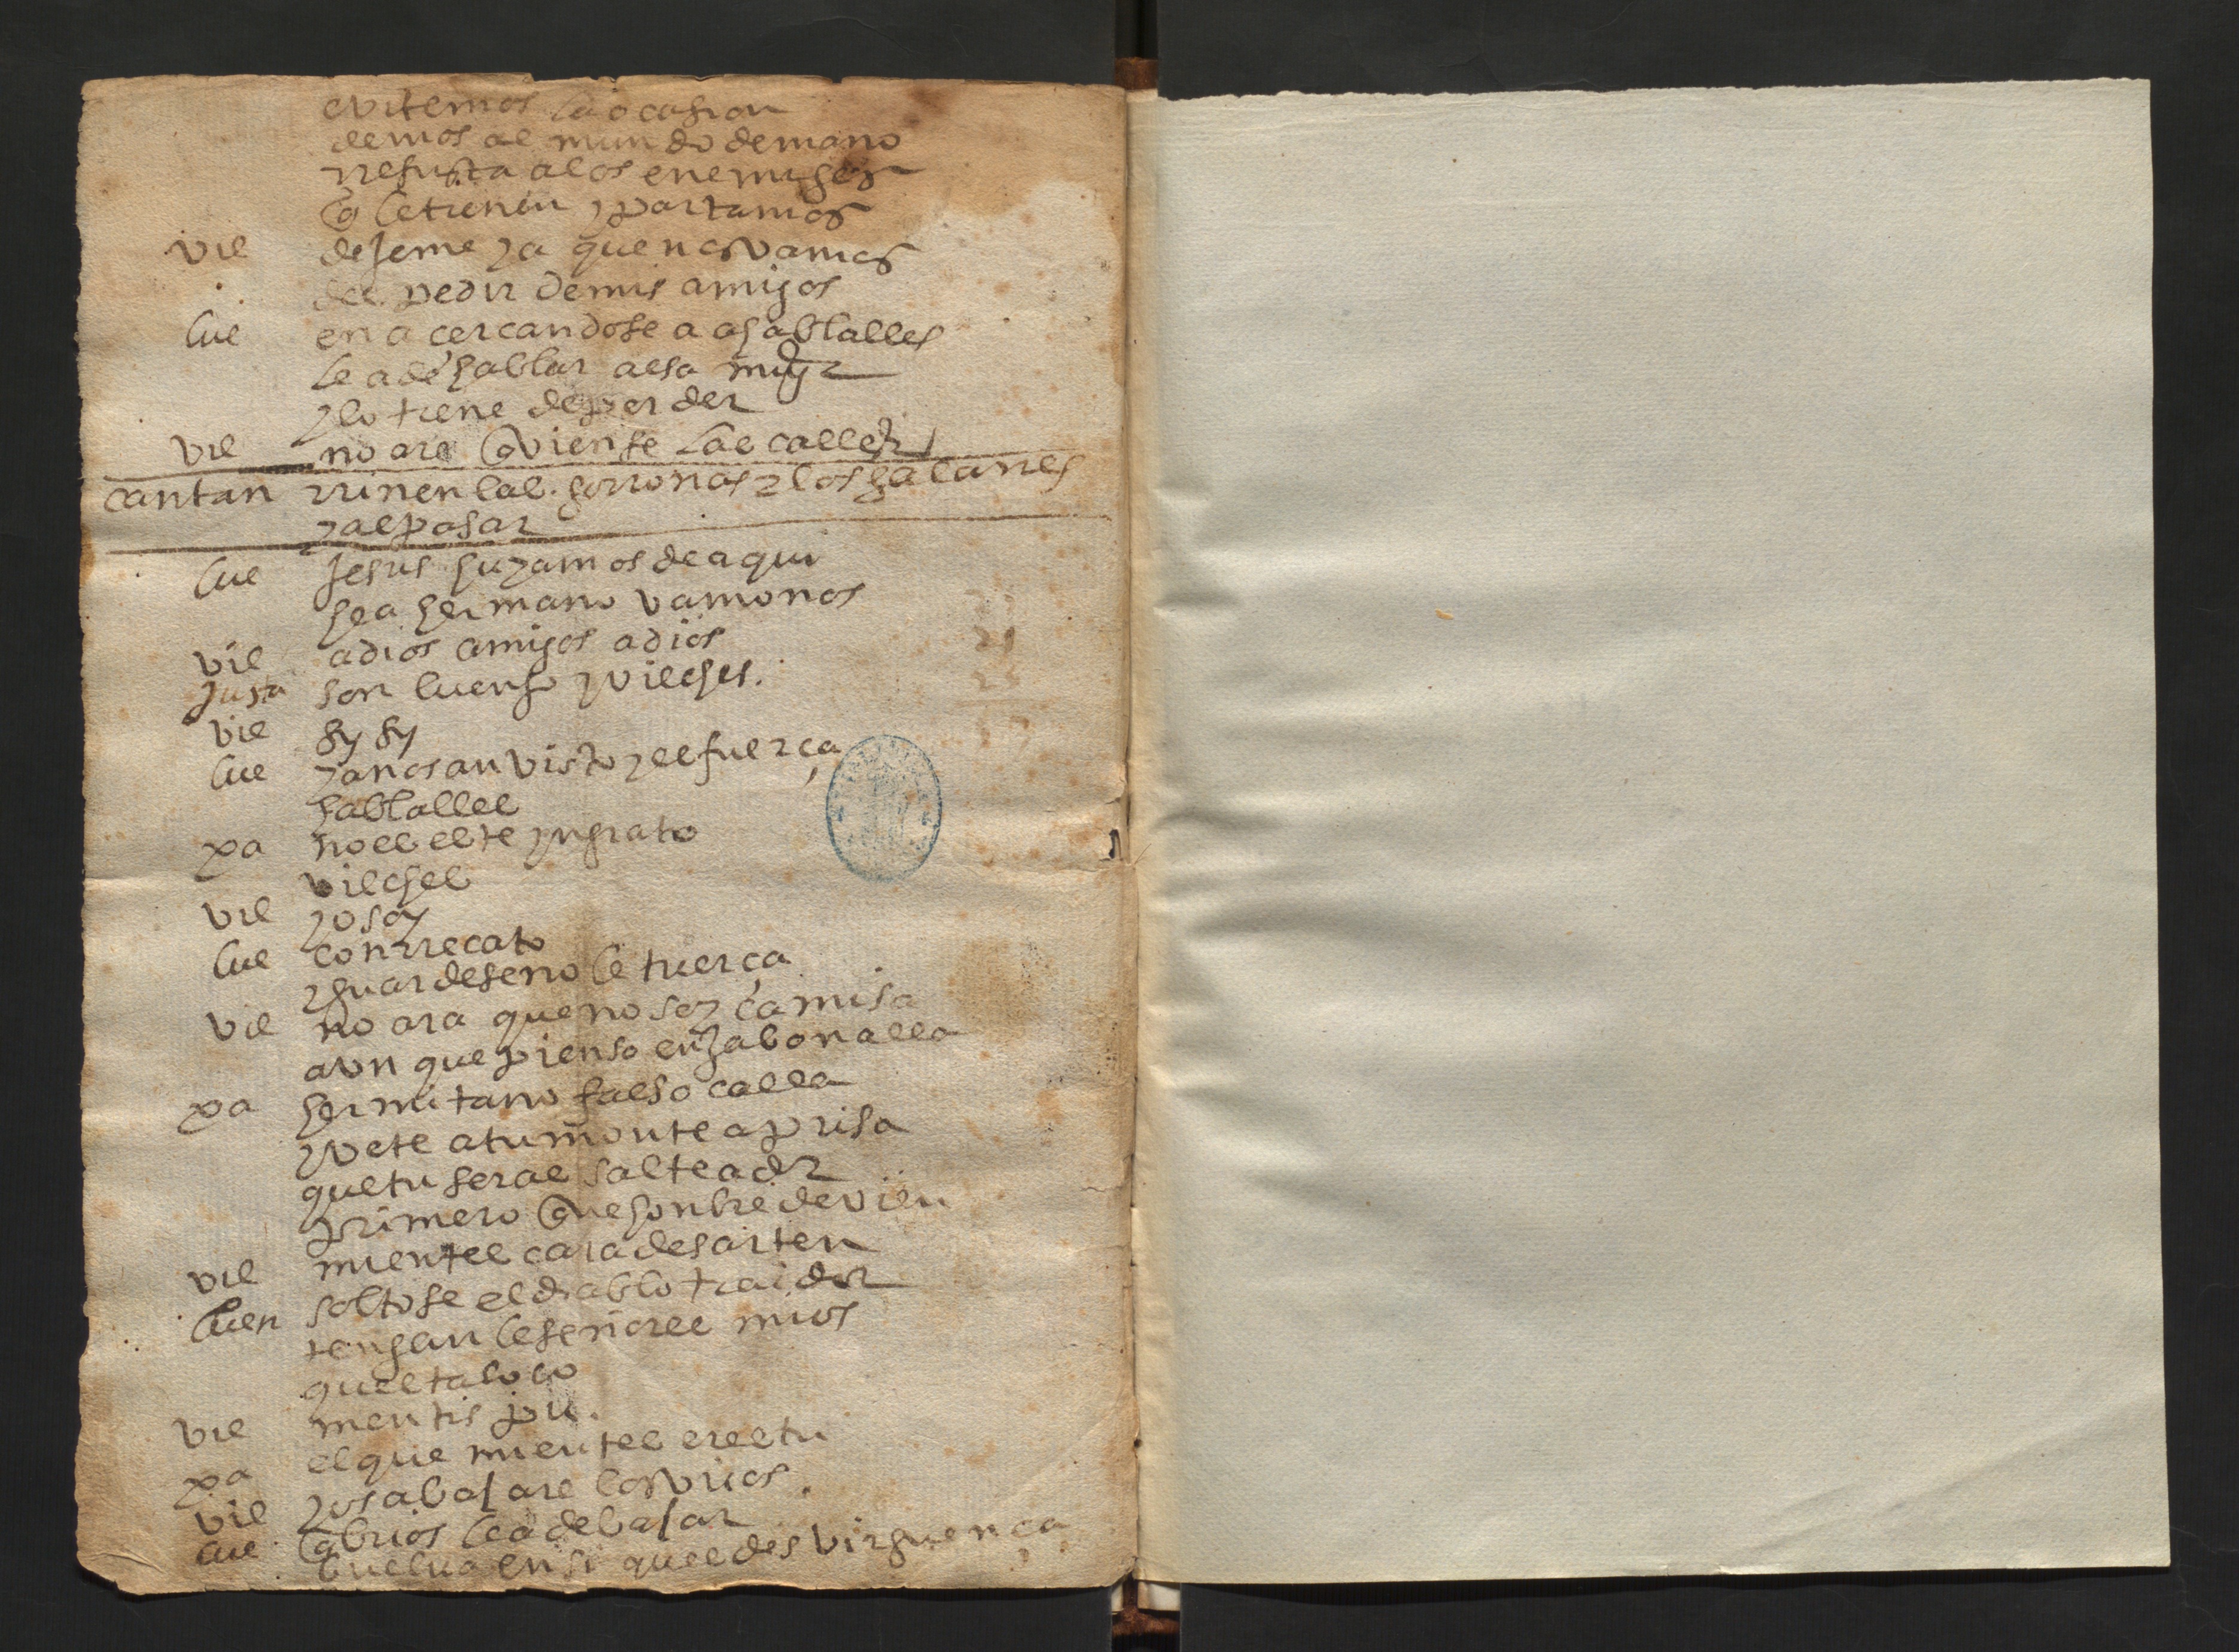 evitemos la ocasion
demos al mundo de mano
rresusta a los enemigos
q le tienen y partamos
vil dejeme ya que nos vamos
des pedir de mis amigos
lue en a cercandose a ahablalles
le a de hablar a esa muger
y lo tiene de perder
vil no are q viense las calles
cantan rrinen las gorronas y los galanes
y al pasar
lue Jesus huyamos de a qui
hea hermano vamonos
vil adios amigos adios
Justa son luengo y vilches.
vil sy sy
lue ya nos an visto y es fuerça
hablalles
pa no es este yngrato
vilches
vil yo soy
lue con rrecato
y guardese no le tuerça
vil no ara que no soy camisa
avn que pienso enjabonalla
pa hermitano falso calla
y vete a tu monte a prisa
que tu seras salteador
primero que honbre de vien
vil mientes cara de sarten
luen soltose el diablo traidor
tengan le señores mios
que esta loco
vil mentis pu.
pa el que mientes eres tu
vil yos abajare los vrios
lue a brios lea de bajar
buelua en si que es des virguença